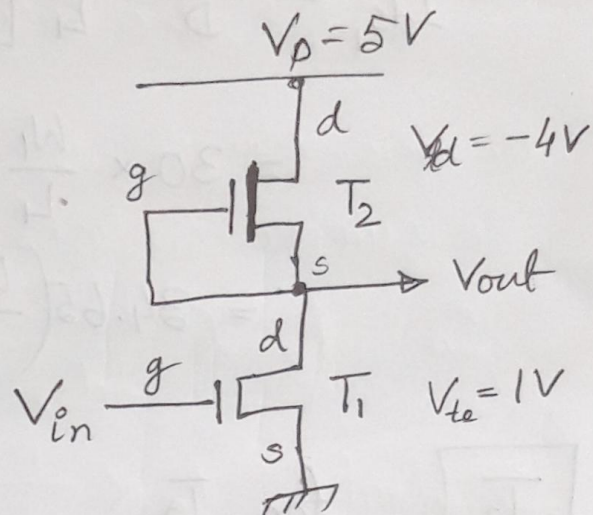 V_D = 5V
d
V_td = -4V
g
T_2
s
Vout
d
g
V_in
T_1
V_te = 1V
s